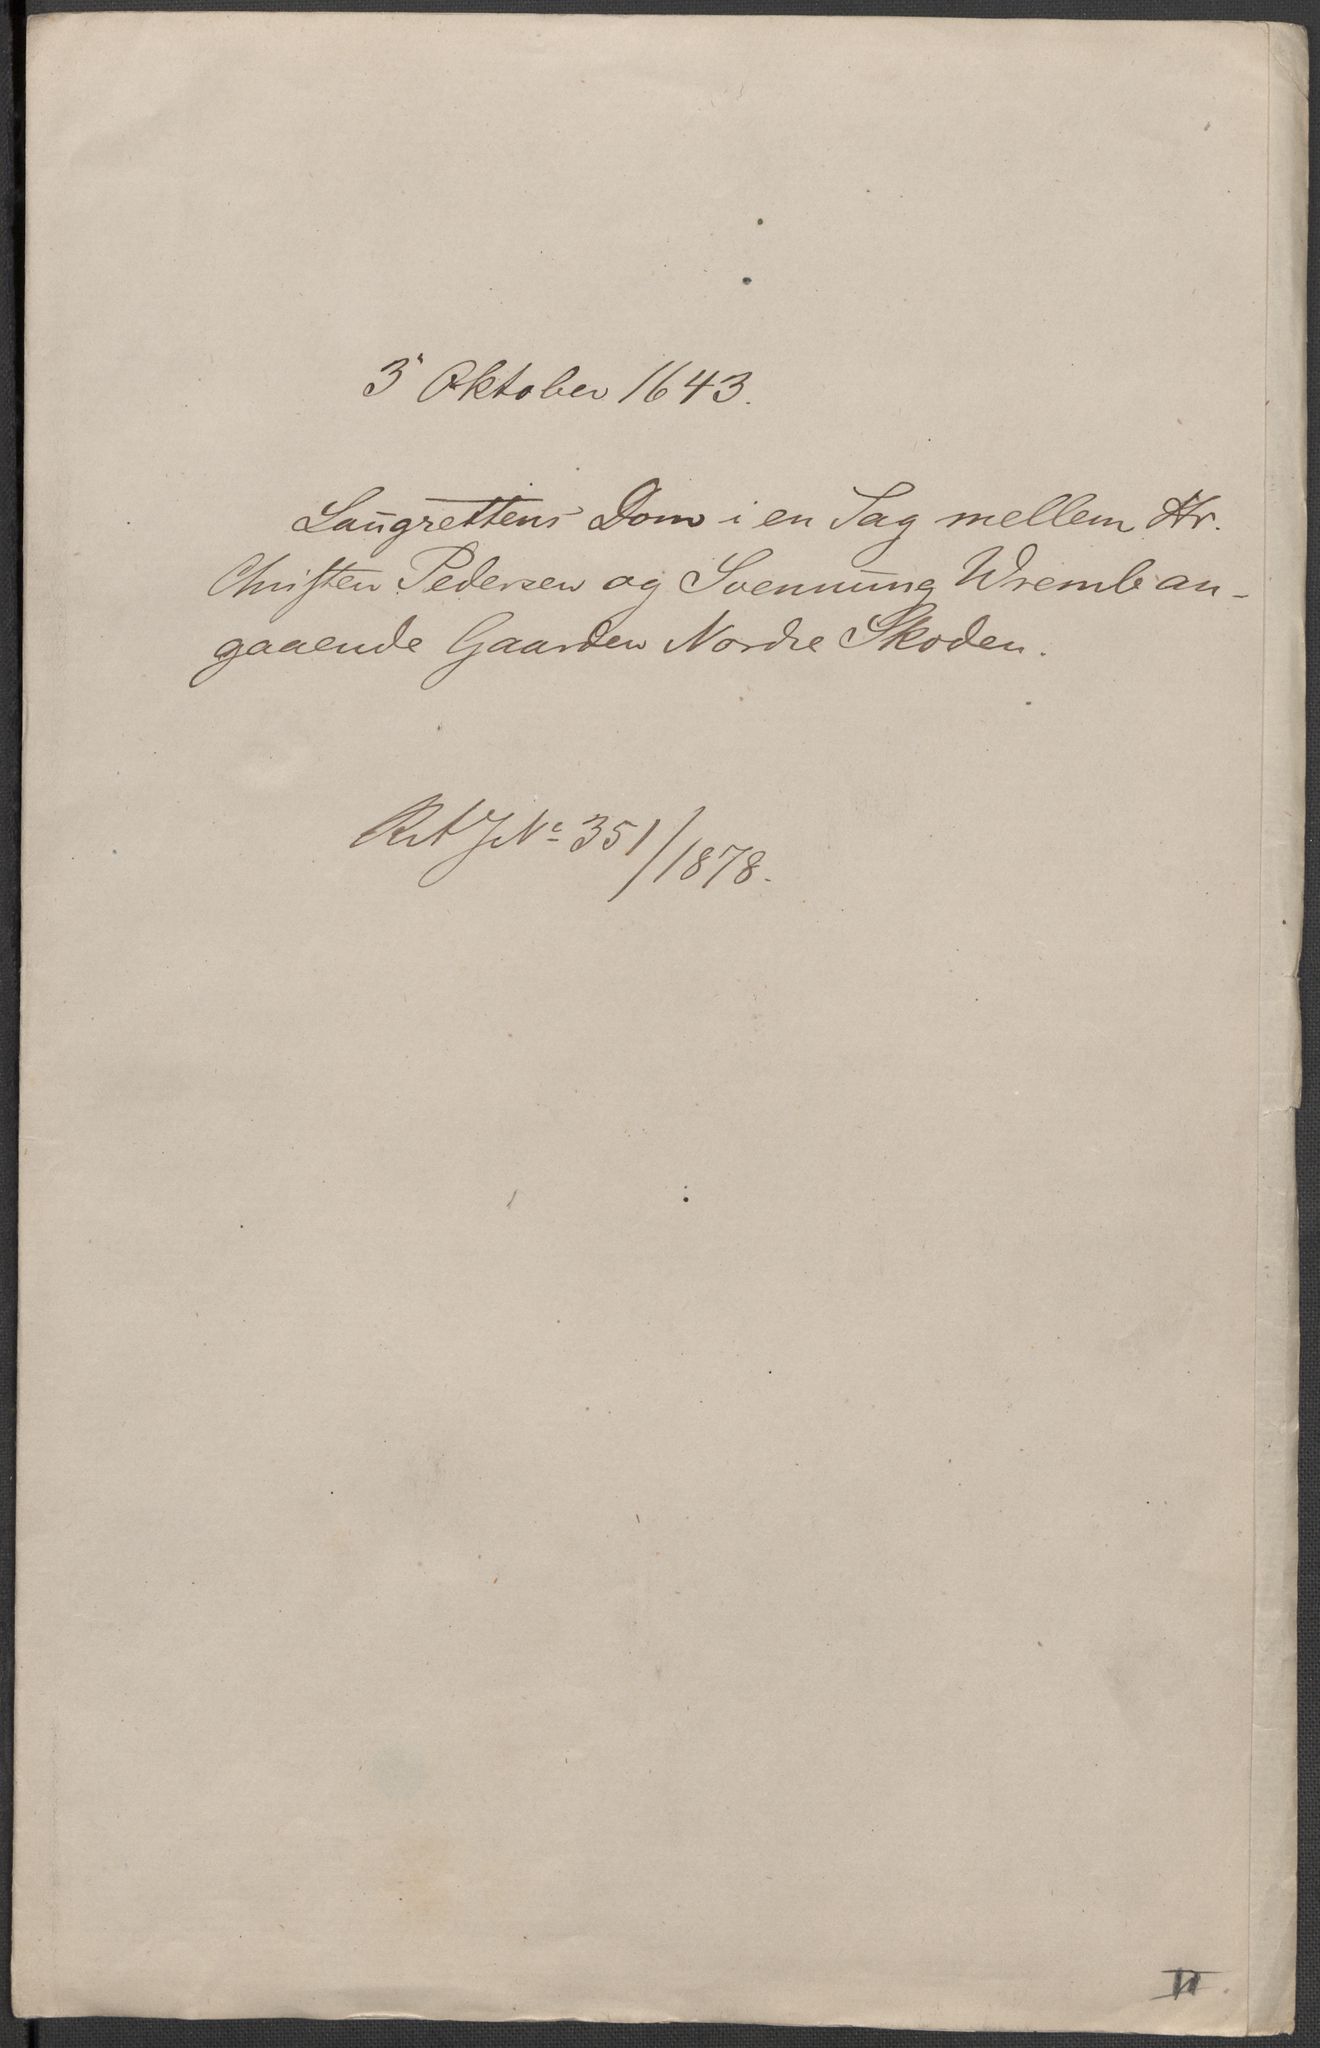 3' Oktober 1643.
Laugrettens Dom i en Sag mellem Hr.
Christen Pedersen og Svennung Wremb an-
gaaende Gaarden Nordre Skoden.
RA J. No 351/1878.